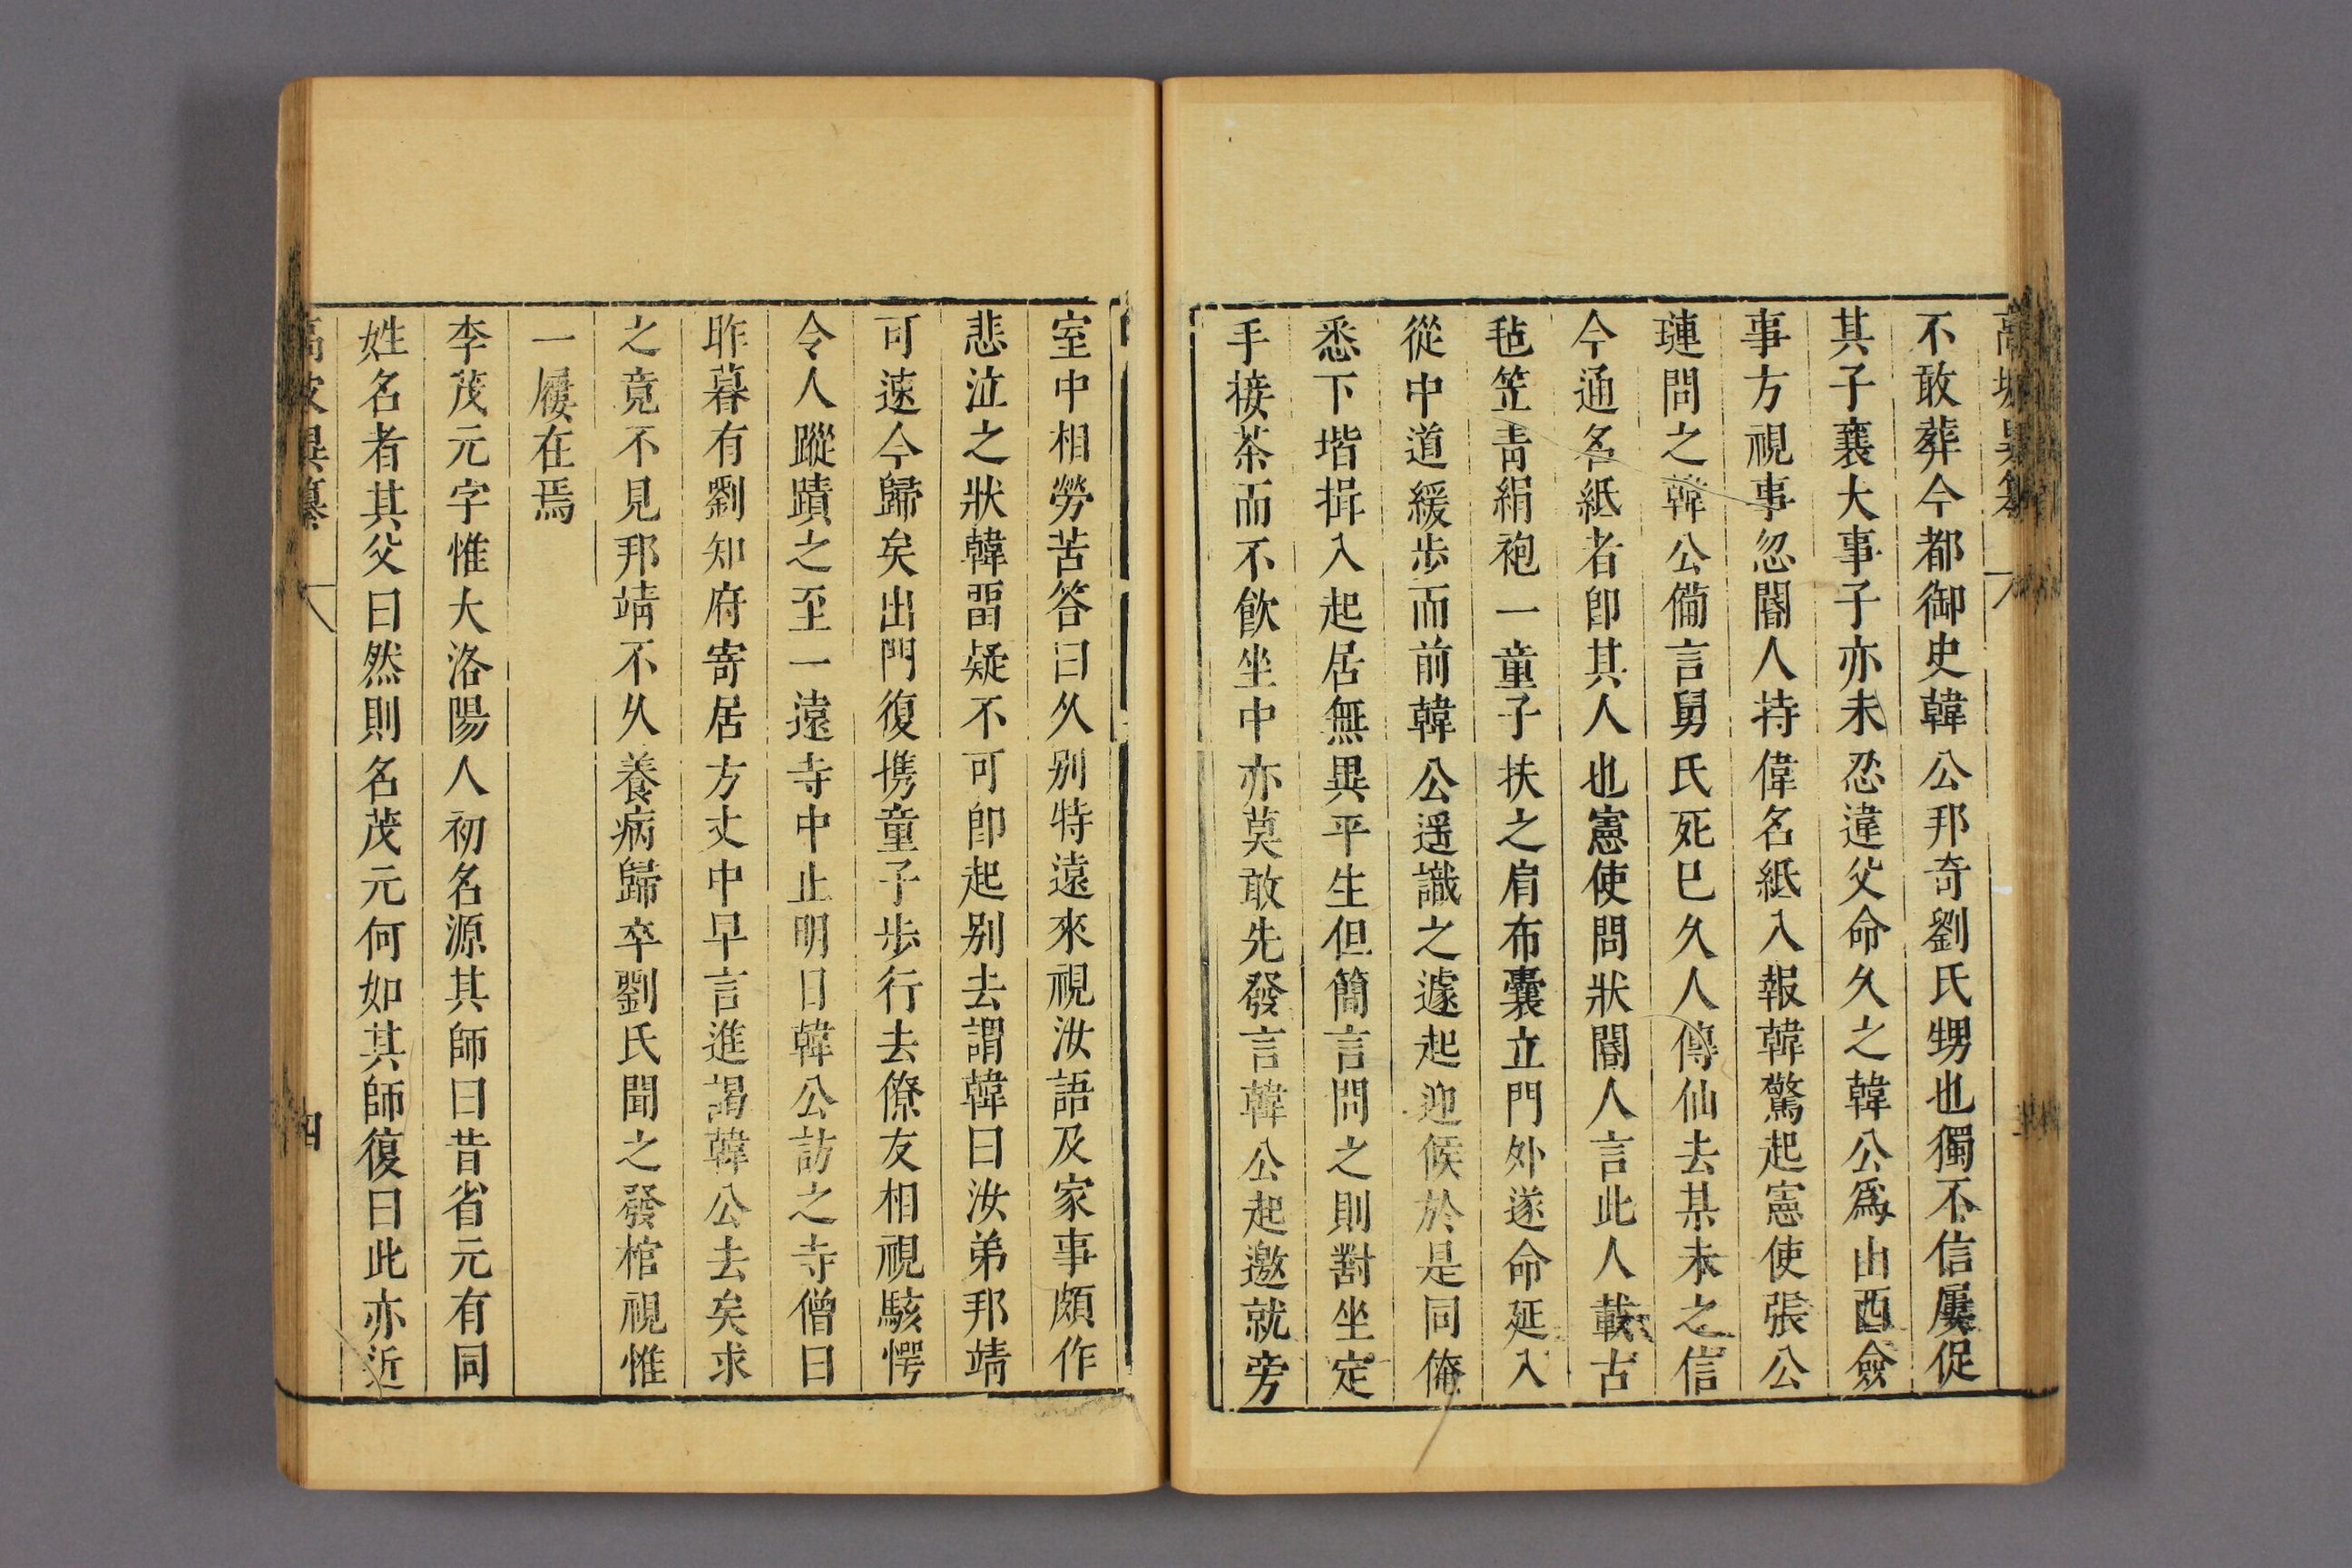 不敢葬今都御史韓公邦奇劉氏甥也獨不信屢促
其子襄大事子亦未忍違父命久之韓公爲山西僉
事方視事忽閽人持偉名紙入報韓驚起憲使張公
璉問之韓公偹言舅氏死巳久人傳仙去某未之信
今通名紙者卽其人也憲使問狀閽人言此人載古
毡笠靑絹袍一童子扶之肩布囊立門外遂命延入
從中道緩步而前韓公遥識之遽起迎候於是同俺
悉下堦揖入起居無異平生但簡言問之則對坐定
手接茶而不飮坐中亦莫敢先發言韓公起邀就旁
室中相勞苦答曰久别特遠來視汝語及家事頗作
悲泣之狀韓畱疑不可卽起别去謂韓曰汝弟邦靖
可速令歸矣出門復携童子步行去僚友相視駭愕
令人蹤蹟之至一遠寺中止明日韓公訪之寺僧曰
昨暮有劉知府寄居方丈中早言進謁韓公去矣求
之竟不見邦靖不久養病歸卒劉氏聞之發棺視惟
一屨在焉
李茂元字惟大洛陽人初名源其師曰昔省元有同
姓名者其父曰然則名茂元何如其師復曰此亦近
異纂
四